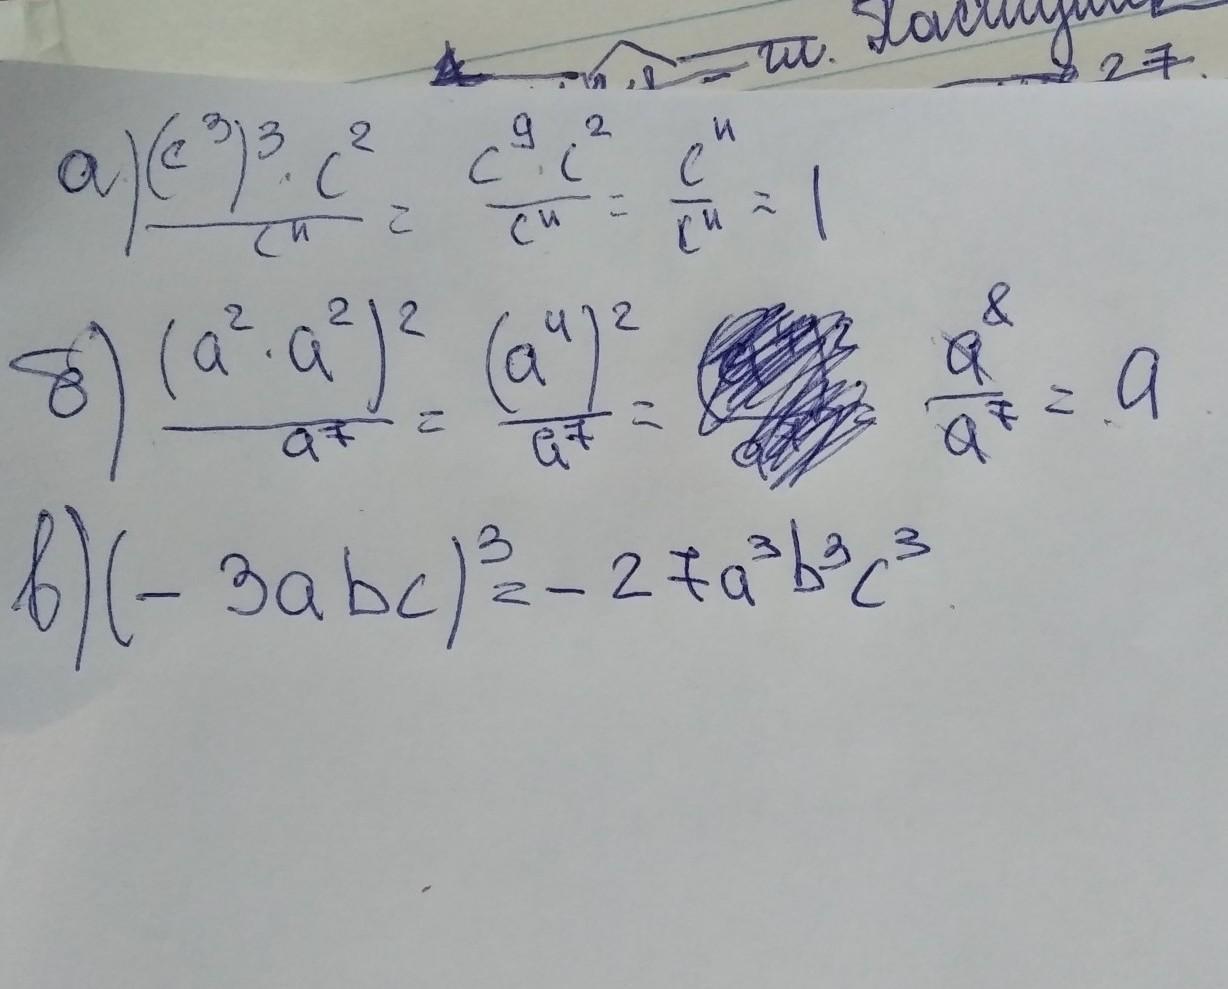 27.
а) (c³)³ · c² / c¹¹ = c⁹ · c² / c¹¹ = c¹¹ / c¹¹ = 1
б) (a² · a²)² / a⁷ = (a⁴)² / a⁷ = a⁸ / a⁷ = a
в) (- 3abc)³ = - 27a³b³c³